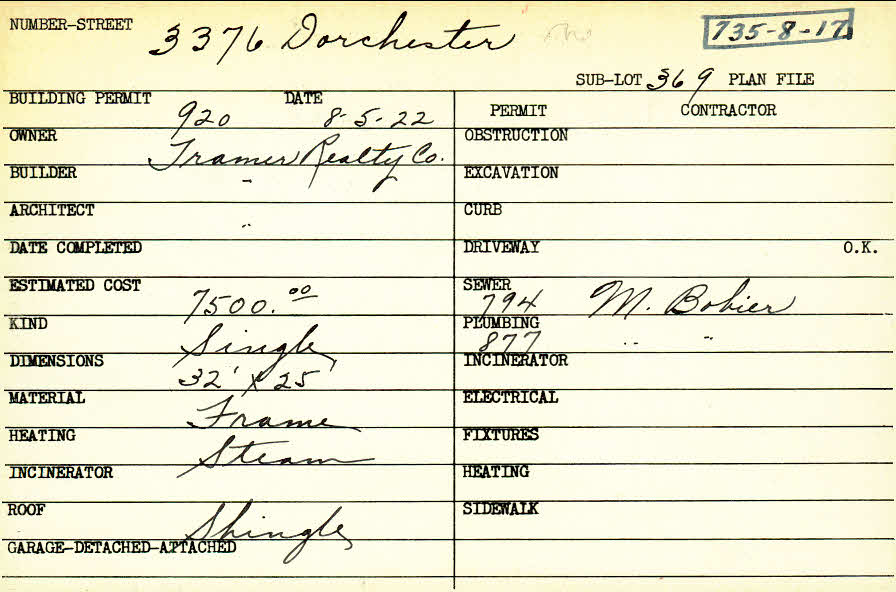 NUMBER-STREET 3376 Dorchester 735-8-17
SUB-LOT 369 PLAN FILE
BUILDING PERMIT 920 DATE 8-5-22
PERMIT CONTRACTOR
OWNER Tramer Realty Co.
OBSTRUCTION
BUILDER "
EXCAVATION
ARCHITECT "
CURB
DATE COMPLETED
DRIVEWAY O.K.
ESTIMATED COST 7500.00
SEWER 794 M. Bobier
KIND Single
PLUMBING 877 " "
DIMENSIONS 32' x 25
INCINERATOR
MATERIAL Frame
ELECTRICAL
HEATING Steam
FIXTURES
INCINERATOR
HEATING
ROOF Shingle
SIDEWALK
GARAGE-DETACHED-ATTACHED